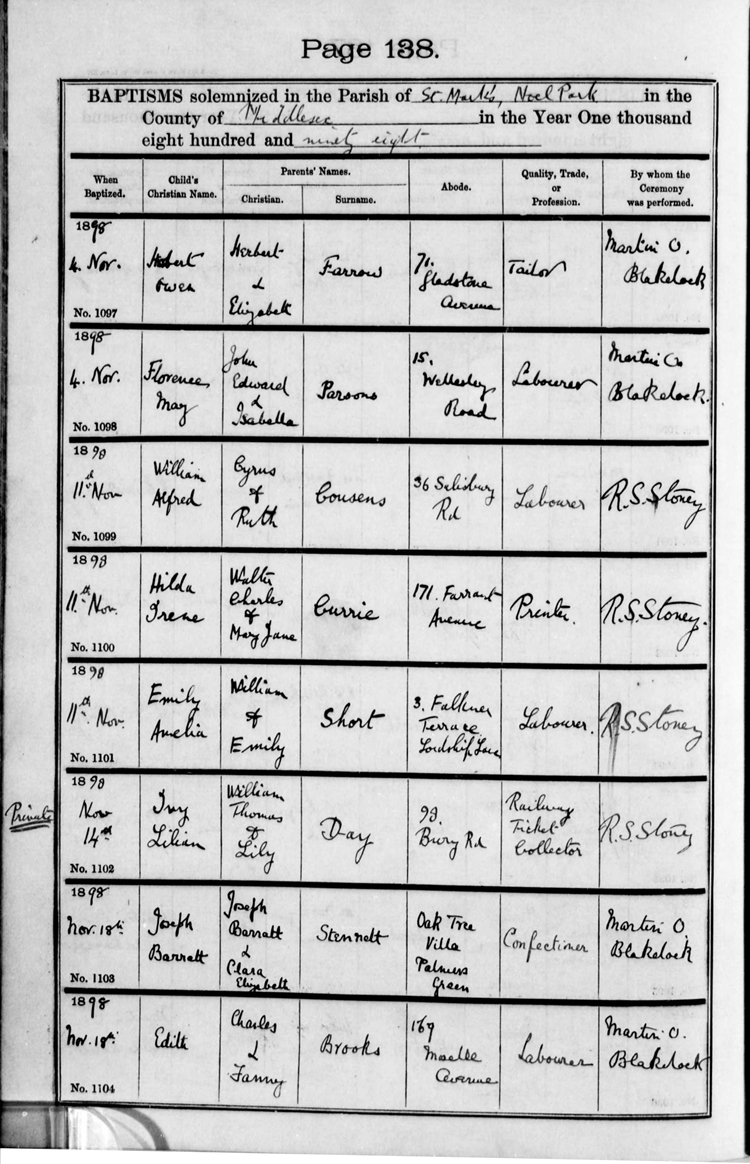 Page 138.
BAPTISMS solemnized in the Parish of St. Mark's, Noel Park in the
County of Middlesex in the Year One thousand
eight hundred and ninety eight
When Baptized.
Child's Christian Name.
Parents' Names.
Christian.
Surname.
Abode.
Quality, Trade, or Profession.
By whom the Ceremony was performed.
1898
4. Nov.
No. 1097
Hubert
Owen
Herbert
&
Elizabeth
Farrow
71.
Gladstone
Avenue
Tailor
Martin O.
Blakelock
1898
4. Nov.
No. 1098
Florence
May
John
Edward
&
Isabella
Parsons
15.
Wellesley
Road
Labourer
Martin O.
Blakelock.
1898
11th Nov
No. 1099
William
Alfred
Cyrus
&
Ruth
Cousens
36 Salisbury
Rd
Labourer
R.S. Stoney
1898
11th Nov.
No. 1100
Hilda
Irene
Walter
Charles
&
Mary Jane
Currie
171. Farrant
Avenue
Printer.
R.S. Stoney.
1898
11th Nov.
No. 1101
Emily
Amelia
William
&
Emily
Short
3. Falkner
Terrace
Lordship Lane
Labourer.
R.S. Stoney
Private
1898
Nov
14th
No. 1102
Ivy
Lilian
William
Thomas
&
Lily
Day
99.
Bury Rd
Railway
Ticket
Collector
R.S. Stoney
1898
Nov. 18th
No. 1103
Joseph
Barratt
Joseph
Barratt
&
Clara
Elizabeth
Stennett
Oak Tree
Villa
Palmers
Green
Confectioner
Martin O.
Blakelock
1898
Nov. 18th
No. 1104
Edith
Charles
&
Fanny
Brooks
169
Moselle
Avenue
Labourer
Martin O.
Blakelock